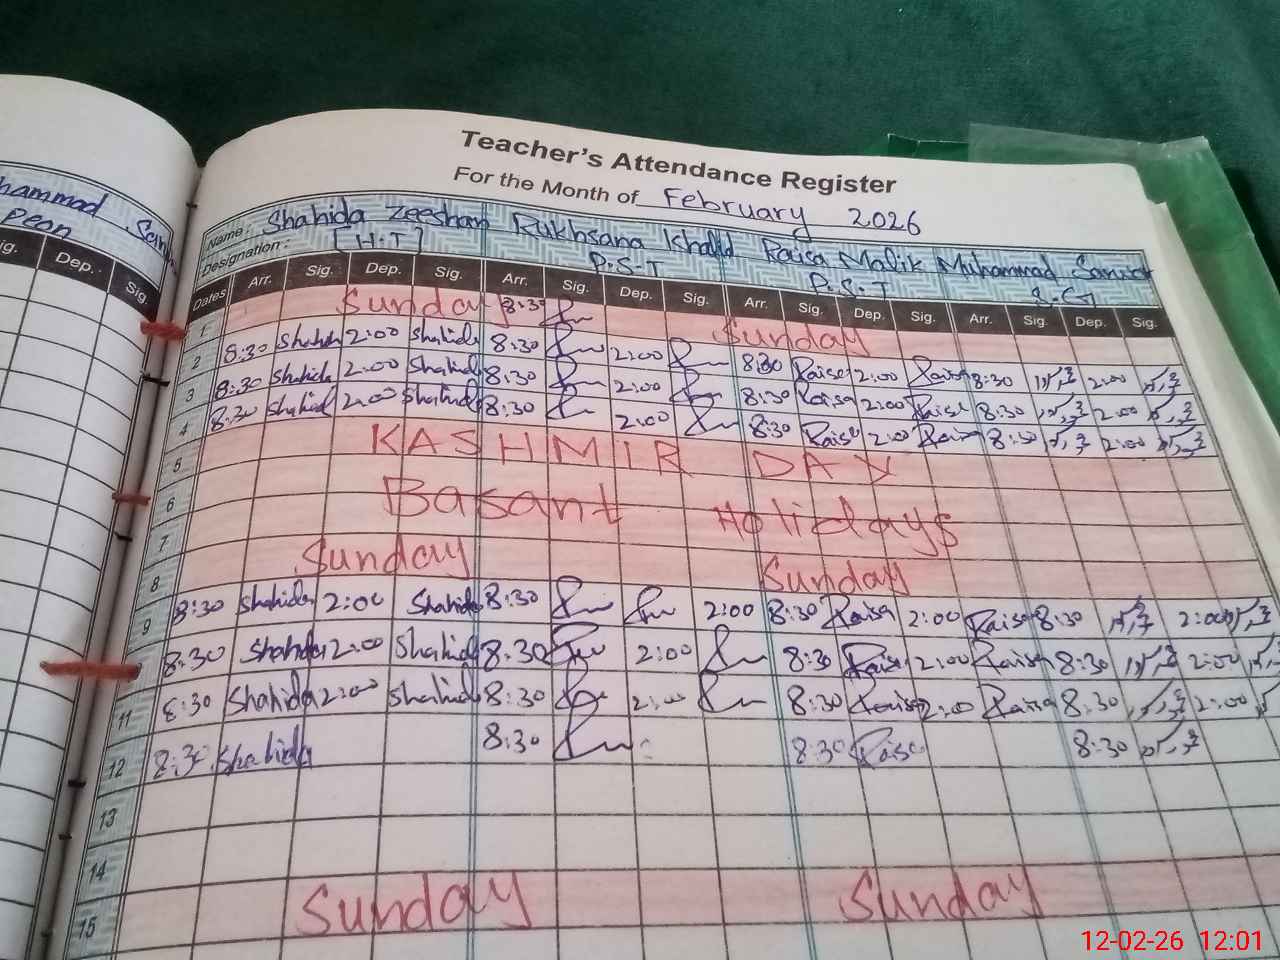 Teacher's Attendance Register
For the Month of February 2026
hammad
Peon
Sig. Dep. Sig.
Name: Shahida Zeeshan Rukhsana Khalid Raisa Malik Muhammad Sarwar
Designation: [H.T] P.S.T P.S.T S.G
Dates Arr. Sig. Dep. Sig. Arr. Sig. Dep. Sig. Arr. Sig. Dep. Sig. Arr. Sig. Dep. Sig.
1 Sunday 8:30 Sunday
2 8:30 Shahida 2:00 Shahida 8:30 2:00 8:30 Raisa 2:00 Raisa 8:30 2:00
3 8:30 Shahida 2:00 Shahida 8:30 2:00 8:30 Raisa 2:00 Raisa 8:30 2:00
4 8:30 Shahida 2:00 Shahida 8:30 2:00 8:30 Raisa 2:00 Raisa 8:30 2:00
5 KASHMIR DAY
6 Basant Holidays
7
8 Sunday Sunday
9 8:30 Shahida 2:00 Shahida 8:30 2:00 8:30 Raisa 2:00 Raisa 8:30 2:00
8:30 Shahida 2:00 Shahida 8:30 2:00 8:30 Raisa 2:00 Raisa 8:30 2:00
11 8:30 Shahida 2:00 Shahida 8:30 2:00 8:30 Raisa 2:00 Raisa 8:30 2:00
12 8:30 Shahida 8:30 8:30 Raisa 8:30
13
14
15 Sunday Sunday
12-02-26 12:01